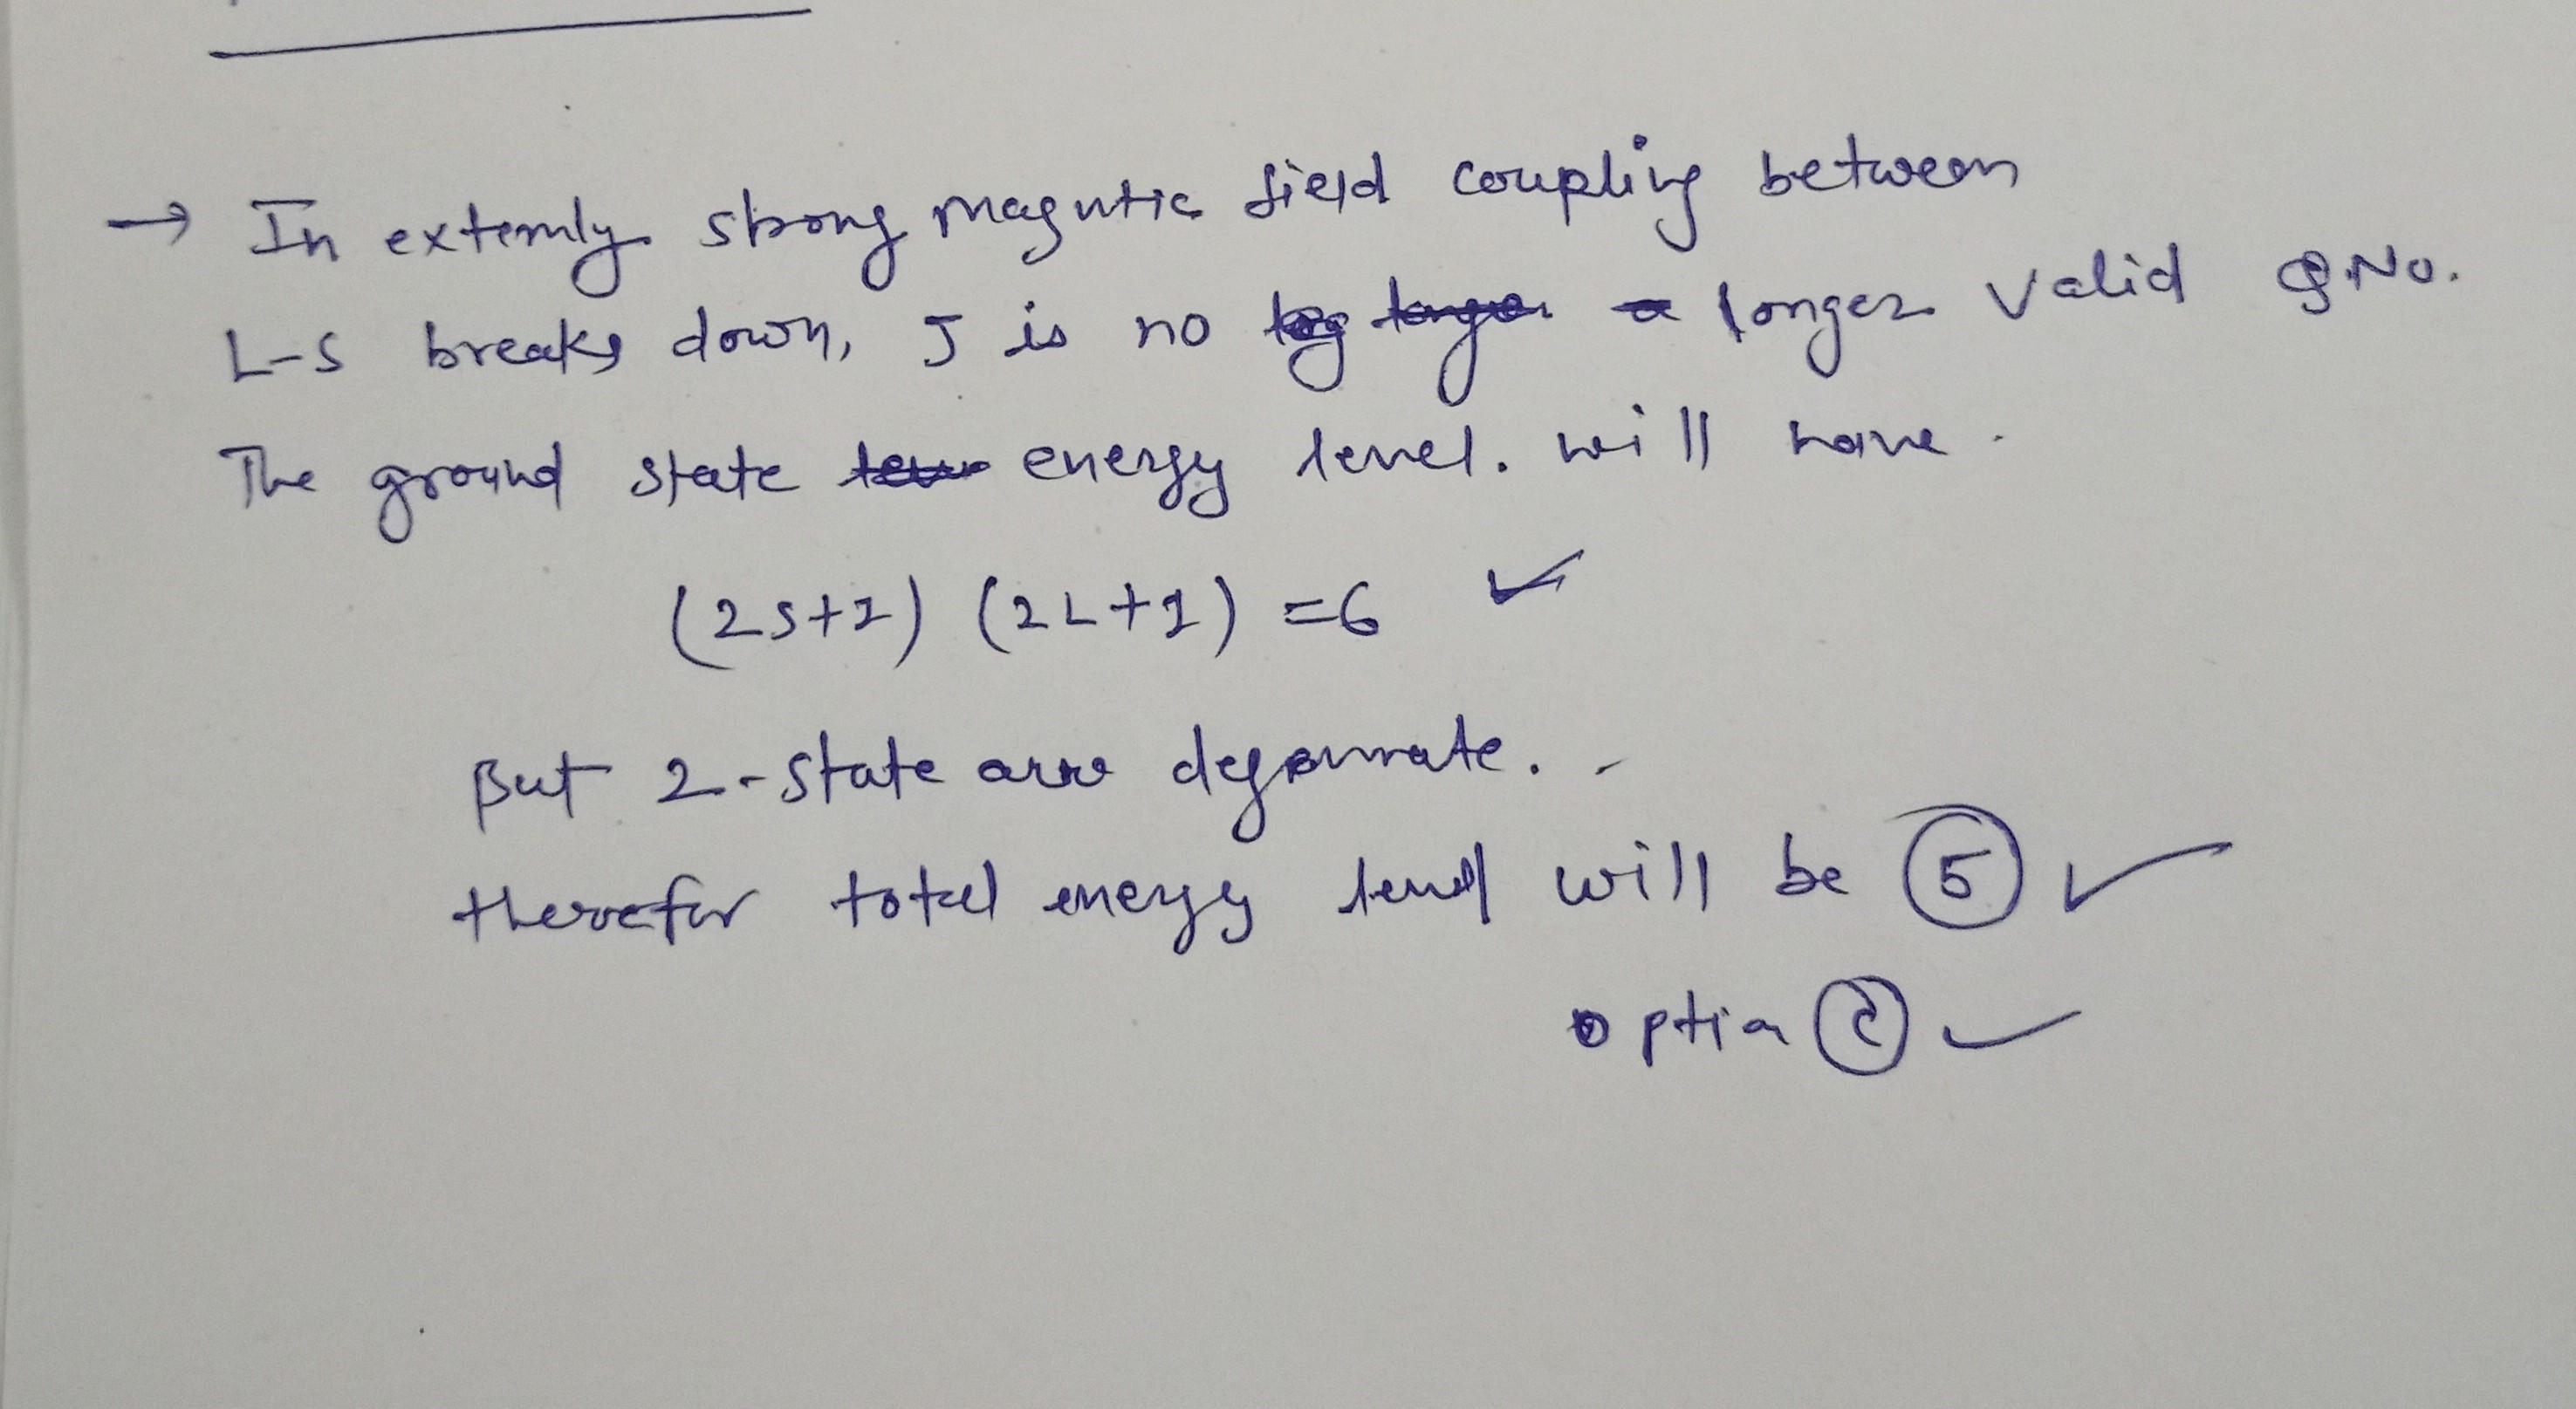 → In extemly strong magntic field coupling between
L-S breaks down, J is no longer valid Q.No.
The ground state energy level. will have.
(2S+1) (2L+1) =6 ✓
But 2-state are degenrate.
therefor total energy level will be 5 ✓
option C ✓